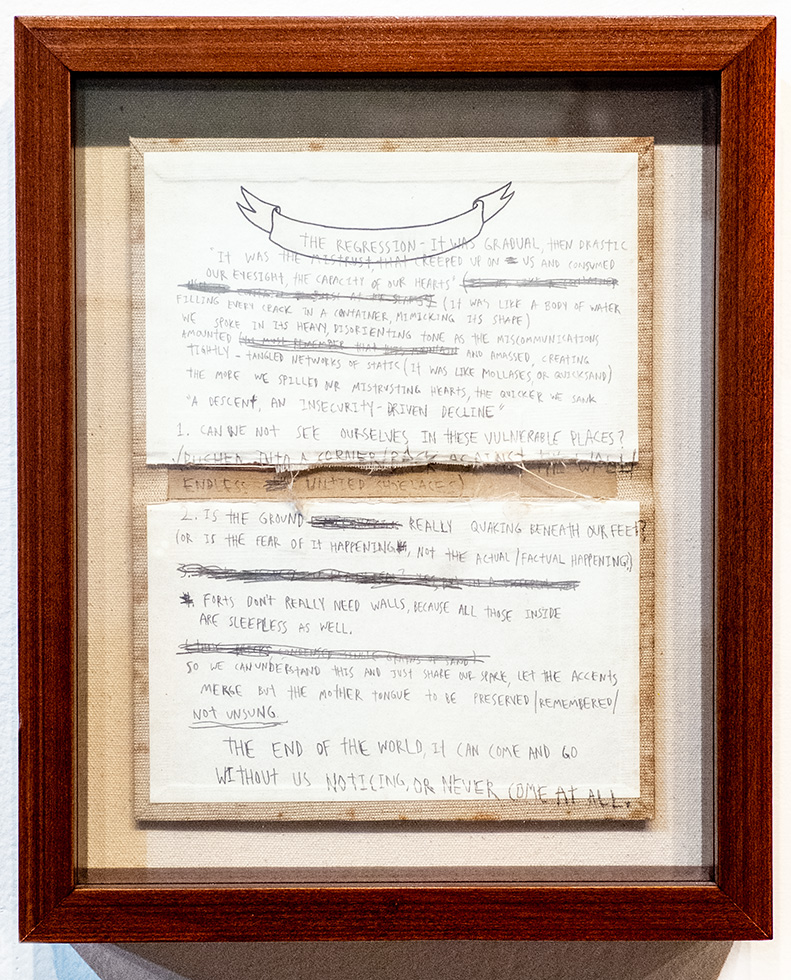 THE REGRESSION - IT WAS GRADUAL, THEN DRASTIC
"IT WAS THE MISTRUST, THAT CREEPED UP ON US AND CONSUMED
OUR EYESIGHT, THE CAPACITY OF OUR HEARTS"
FILLING EVERY CRACK IN A CONTAINER, MIMICKING ITS SHAPE) (IT WAS LIKE A BODY OF WATER
WE SPOKE IN ITS HEAVY, DISORIENTING TONE AS THE MISCOMMUNICATIONS
AMOUNTED AND AMASSED, CREATING
TIGHTLY - TANGLED NETWORKS OF STATIC (IT WAS LIKE MOLLASES, OR QUICKSAND)
THE MORE WE SPILLED OUR MISTRUSTING HEARTS, THE QUICKER WE SANK
"A DESCENT, AN INSECURITY-DRIVEN DECLINE"
1. CAN WE NOT SEE OURSELVES IN THESE VULNERABLE PLACES?
INTO A CORNER/BACK AGAINST THE WALL/
ENDLESS UNTIED SHOELACES)
2. IS THE GROUND REALLY QUAKING BENEATH OUR FEET?
(OR IS THE FEAR OF IT HAPPENING, NOT THE ACTUAL/FACTUAL HAPPENING?)
FORTS DON'T REALLY NEED WALLS, BECAUSE ALL THOSE INSIDE
ARE SLEEPLESS AS WELL.
SO WE CAN UNDERSTAND THIS AND JUST SHARE OUR SPACE, LET THE ACCENTS
MERGE BUT THE MOTHER TONGUE TO BE PRESERVED/REMEMBERED/
NOT UNSUNG.
THE END OF THE WORLD, IT CAN COME AND GO
WITHOUT US NOTICING, OR NEVER COME AT ALL.